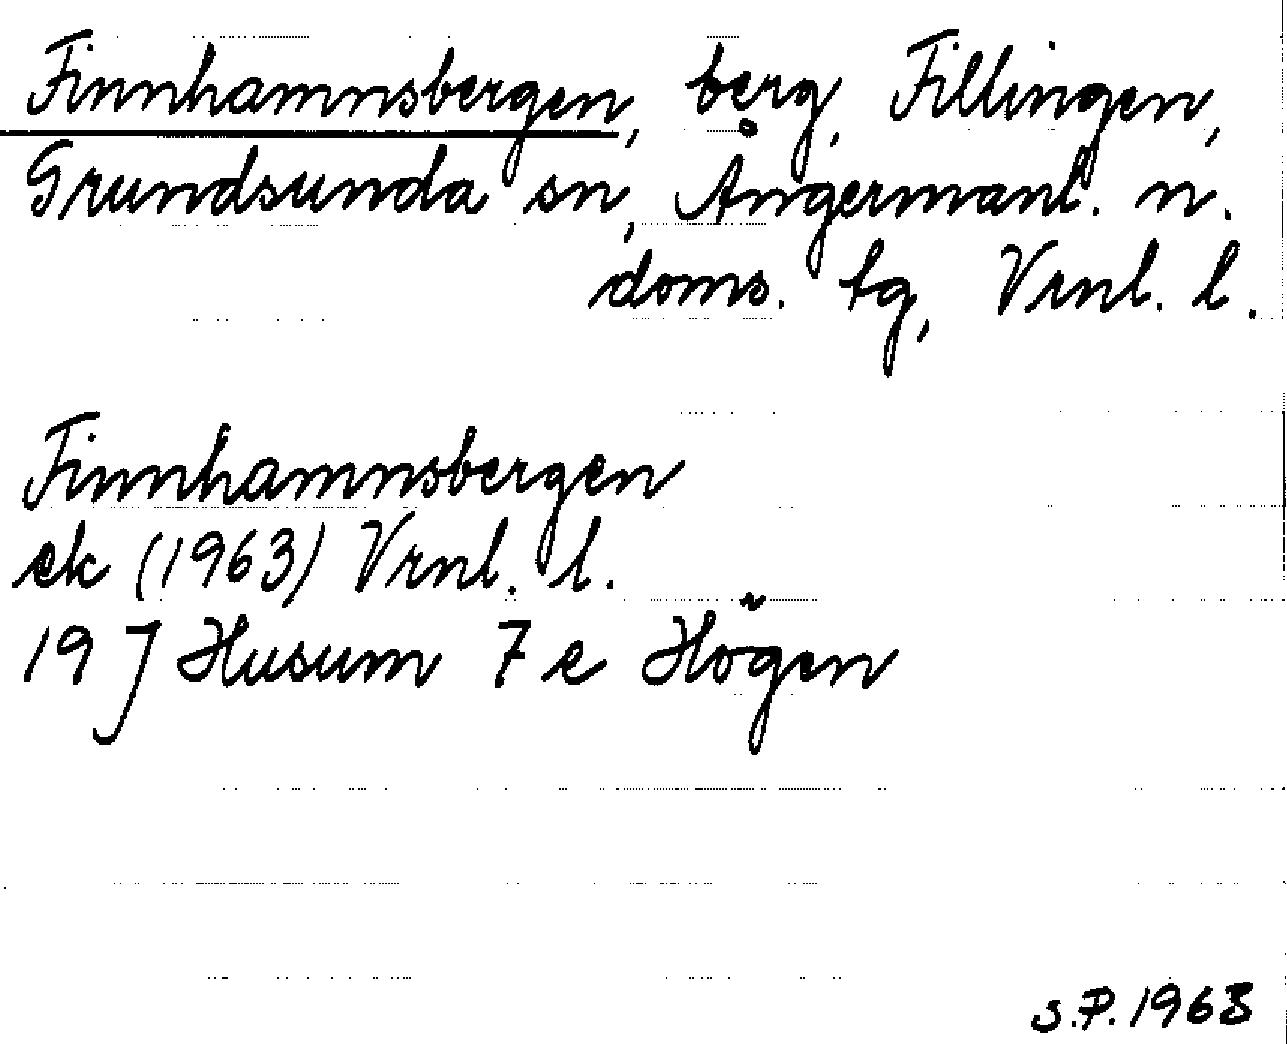 Finnhamnsbergen, berg, Fillingen,
Grundsunda sn, Ångermanl. n.
doms. tg, Vrnl. l.
Finnhamnsbergen
ek (1963) Vrnl. l.
19 J Husum 7 e Högen
S.P. 1963